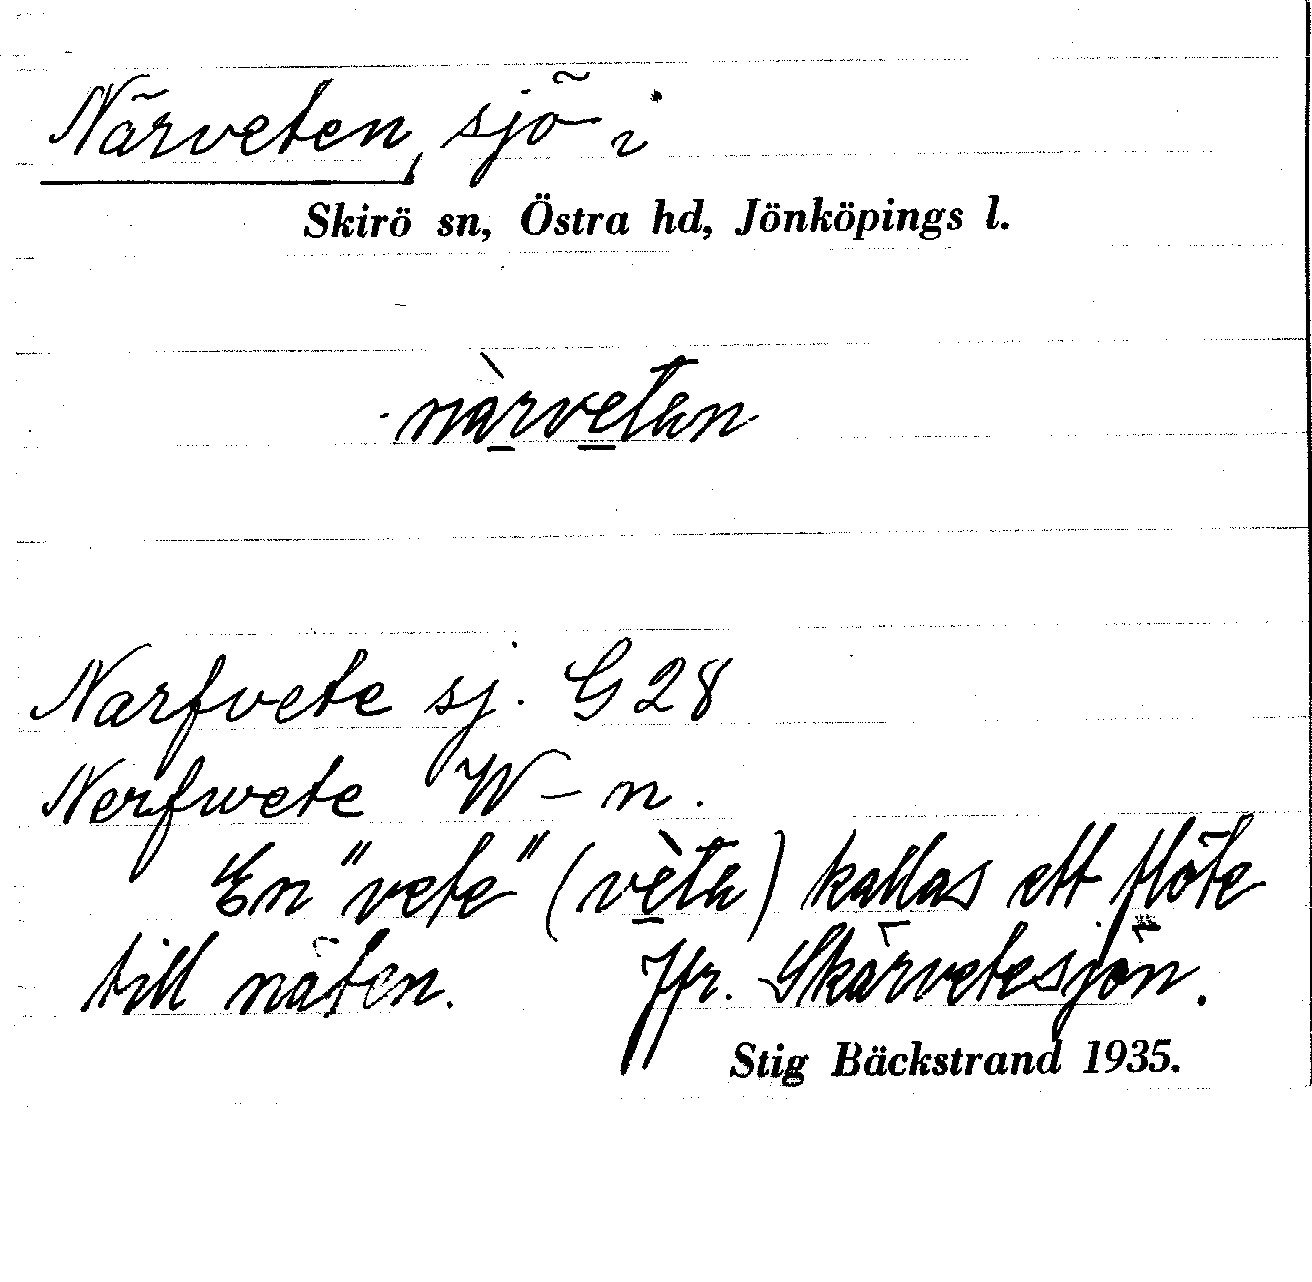 Närveten, sjö i
Skirö sn, Östra hd, Jönköpings l.
närvetən
Narfvete sj. G 28
Nerfwete W-n.
En "vete" (vètə) kallas ett flöte
till näten. Jfr. Skärvetesjön.
Stig Bäckstrand 1935.